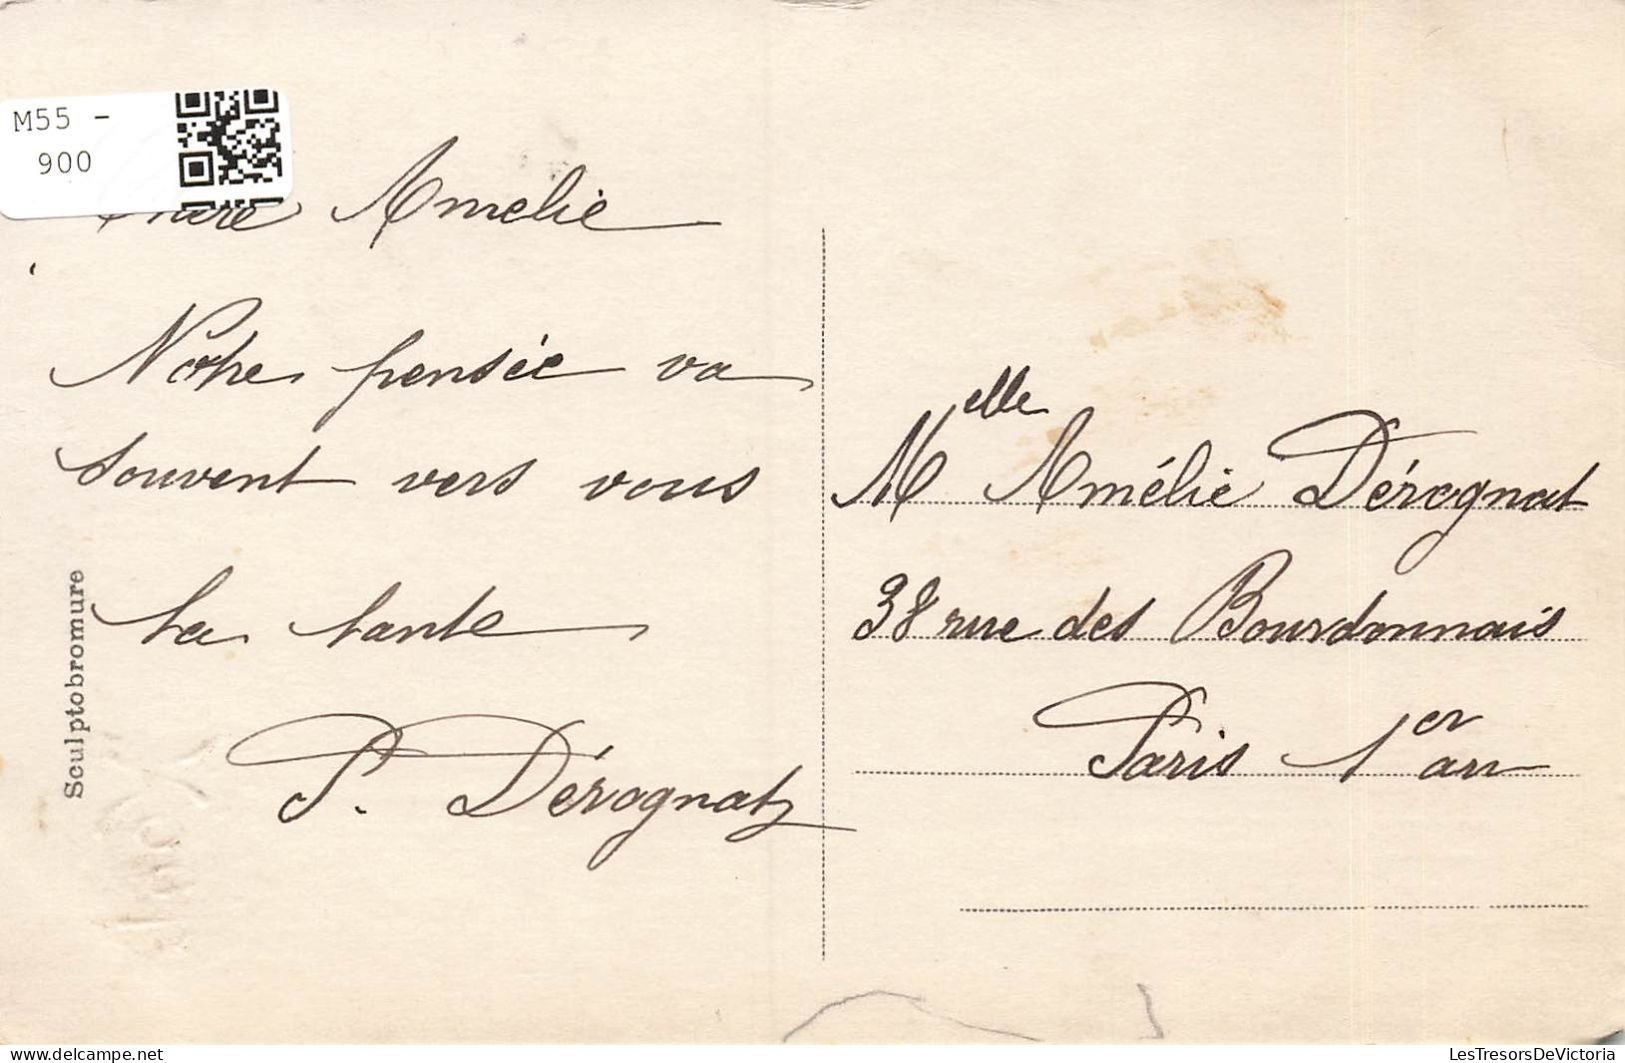 M55 -
900
Chère Amelie
Notre pensée va
souvent vers vous
ta tante
P. Dérognat
Sculptobromure
Melle Amélie Dérognat
38 rue des Bourdonnais
Paris 1er arr
LesTresorsDeVictoria
delcampe.net